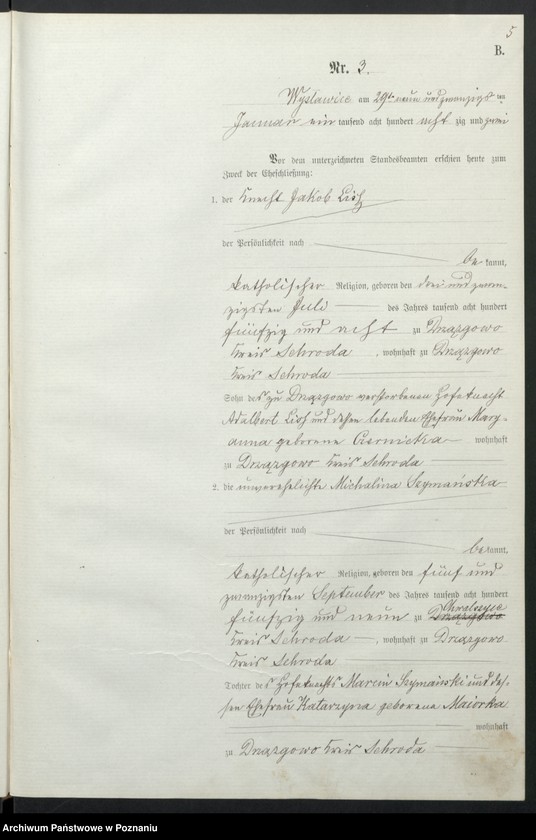 5
B.
Nr. 3.
Wyslawice am 29ten neun und zwanzigsten
Januar ein tausend acht hundert acht zig und zwei
Vor dem unterzeichneten Standesbeamten erschien heute zum
Zweck der Eheschließung:
1. der Knecht Jakob Lis
der Persönlichkeit nach
be kannt,
katholischer Religion, geboren den drei und zwan-
zigsten Juli des Jahres tausend acht hundert
fünfzig und acht zu Drzązgowo
Kreis Schroda, wohnhaft zu Drzązgowo
Kreis Schroda
Sohn des zu Drzązgowo verstorbenen Hofeknecht
Adalbert Lis und dessen lebenden Ehefrau Mary-
anna geborene wohnhaft
zu Drzązgowo Kreis Schroda
2. die unverehelichte Michalina Szymańska
der Persönlichkeit nach
be kannt,
katholischer Religion, geboren den fünf und
zwanzigsten September des Jahres tausend acht hundert
fünfzig und neun zu Drzązgowo
Kreis Schroda, wohnhaft zu Drzązgowo
Kreis Schroda
Tochter des Hofeknechts Marcin Szymański und des-
sen Ehefrau Katarzyna geborene Maiorka
wohnhaft
zu Drzązgowo Kreis Schroda
Archiwum Państwowe w Poznaniu